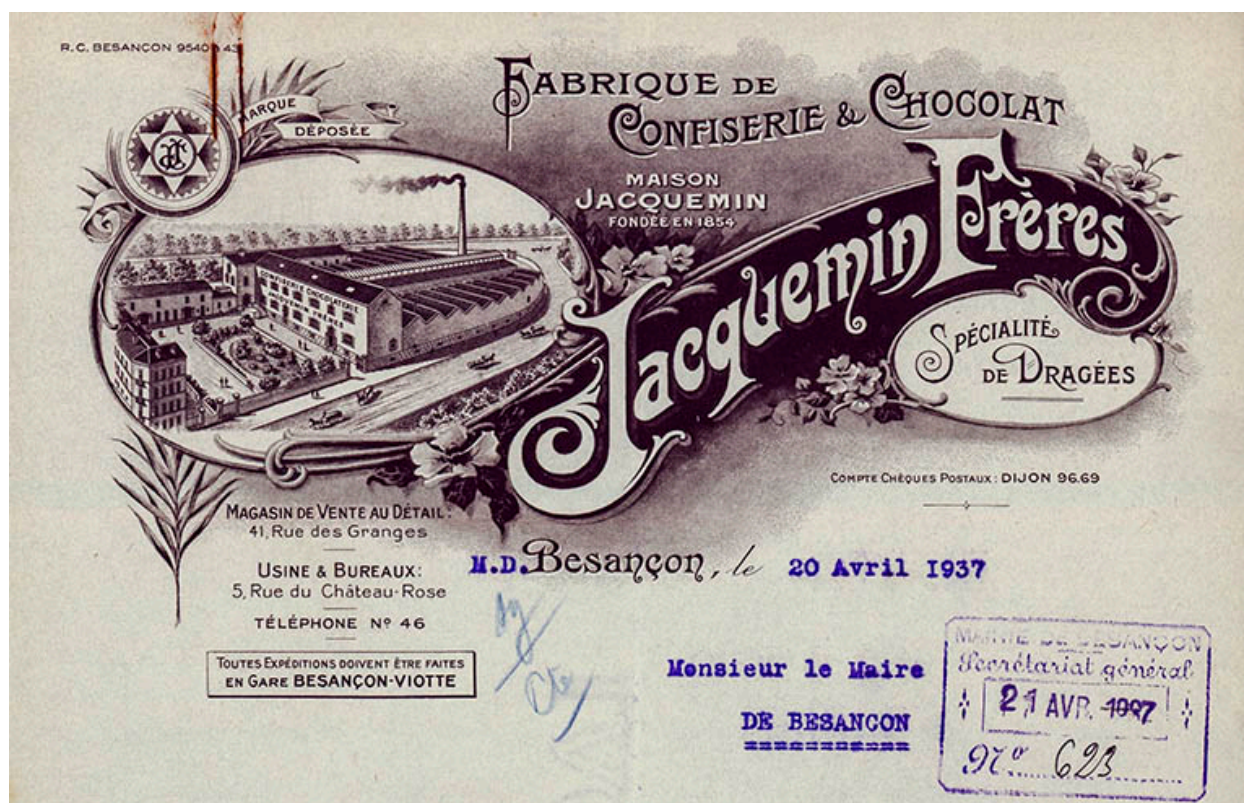 R.C. BESANÇON 9540
MARQUE
DÉPOSÉE
FABRIQUE DE
CONFISERIE & CHOCOLAT
MAISON
JACQUEMIN
FONDÉE EN 1854
Jacquemin Frères
SPÉCIALITÉ
DE DRAGÉES
CONFISERIE CHOCOLATERIE
JACQUEMIN FRÈRES
COMPTE CHÈQUES POSTAUX: DIJON 96.69
MAGASIN DE VENTE AU DÉTAIL:
41, Rue des Granges
USINE & BUREAUX:
5, Rue du Château-Rose
TÉLÉPHONE Nº 46
TOUTES EXPÉDITIONS DOIVENT ÊTRE FAITES
EN GARE BESANÇON-VIOTTE
M.D. Besançon, le 20 Avril 1937
Monsieur le Maire
DE BESANCON
MAIRIE DE BESANÇON
Secrétariat général
21 AVR.
Nº 623